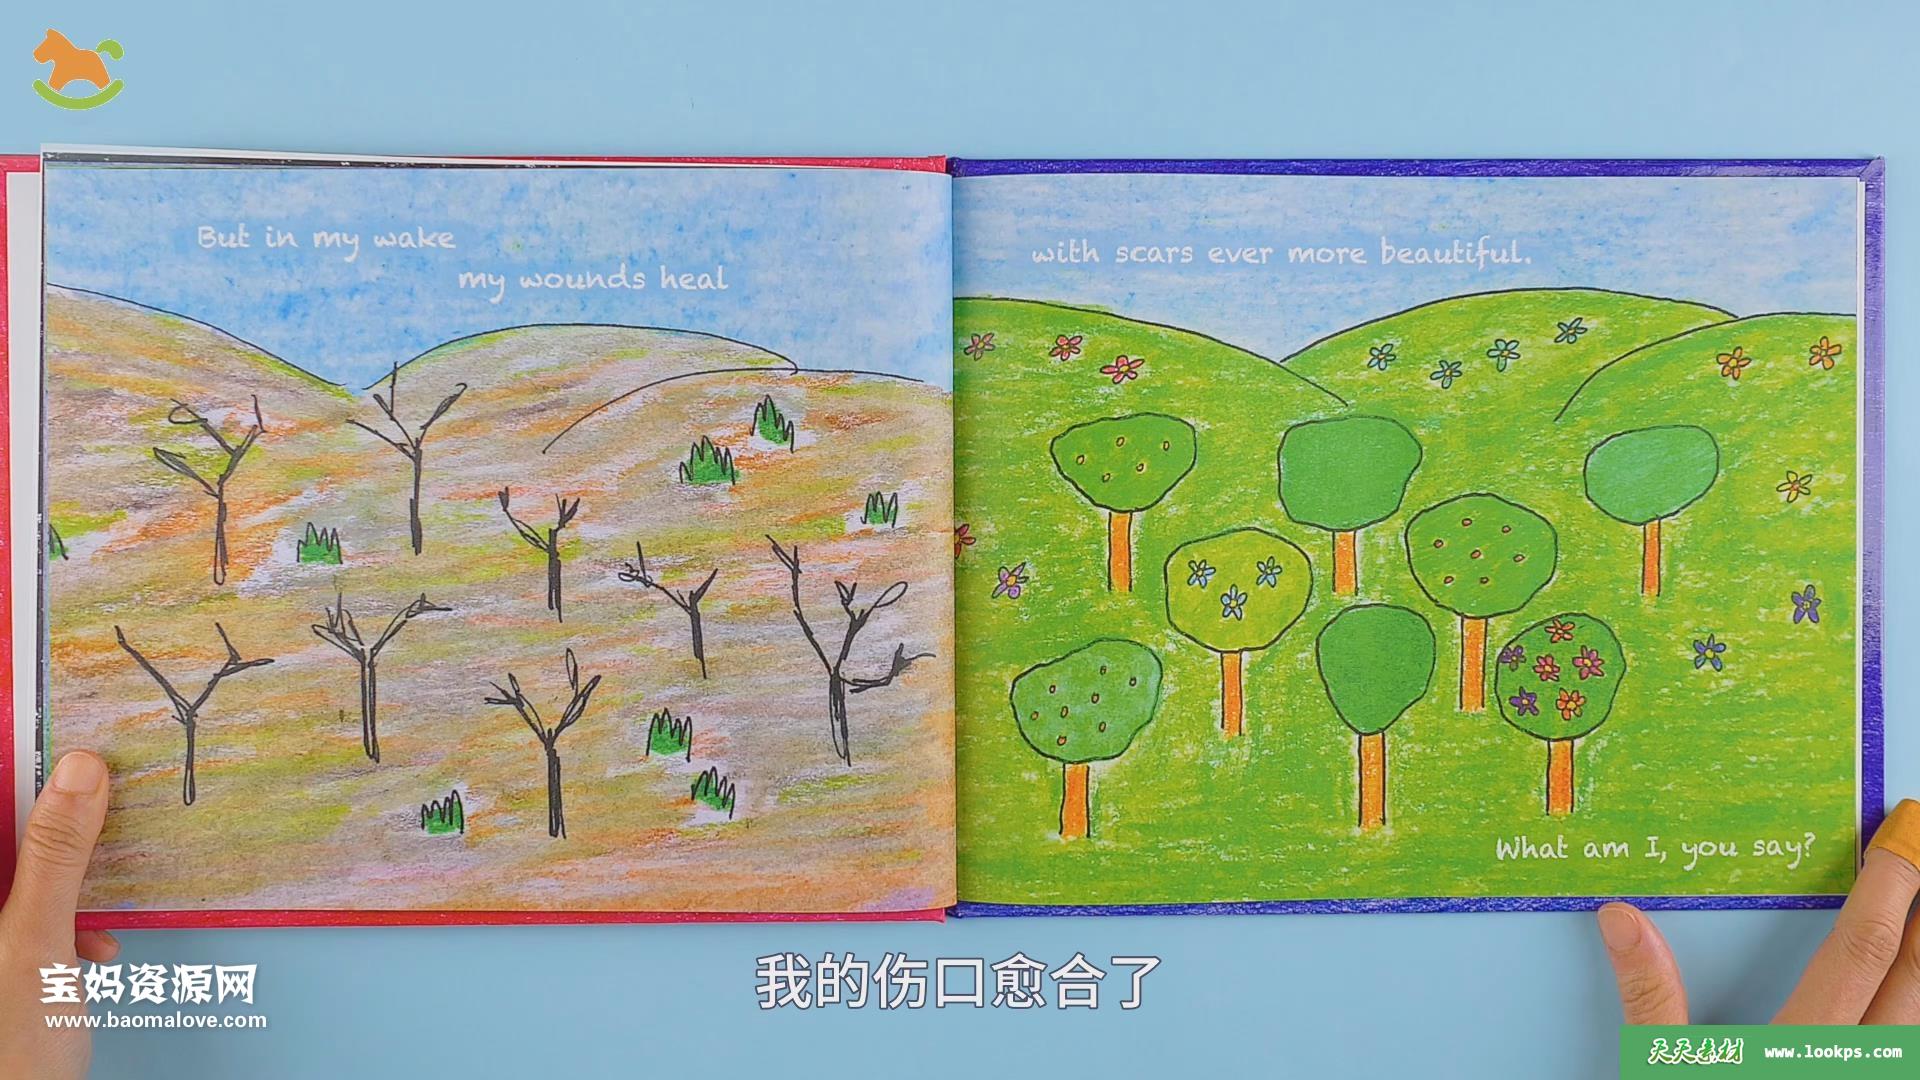 But in my wake
my wounds heal
with scars ever more beautiful.
What am I, you say?
我的伤口愈合了
宝妈资源网
www.baomalove.com
天天素材 www.lookps.com